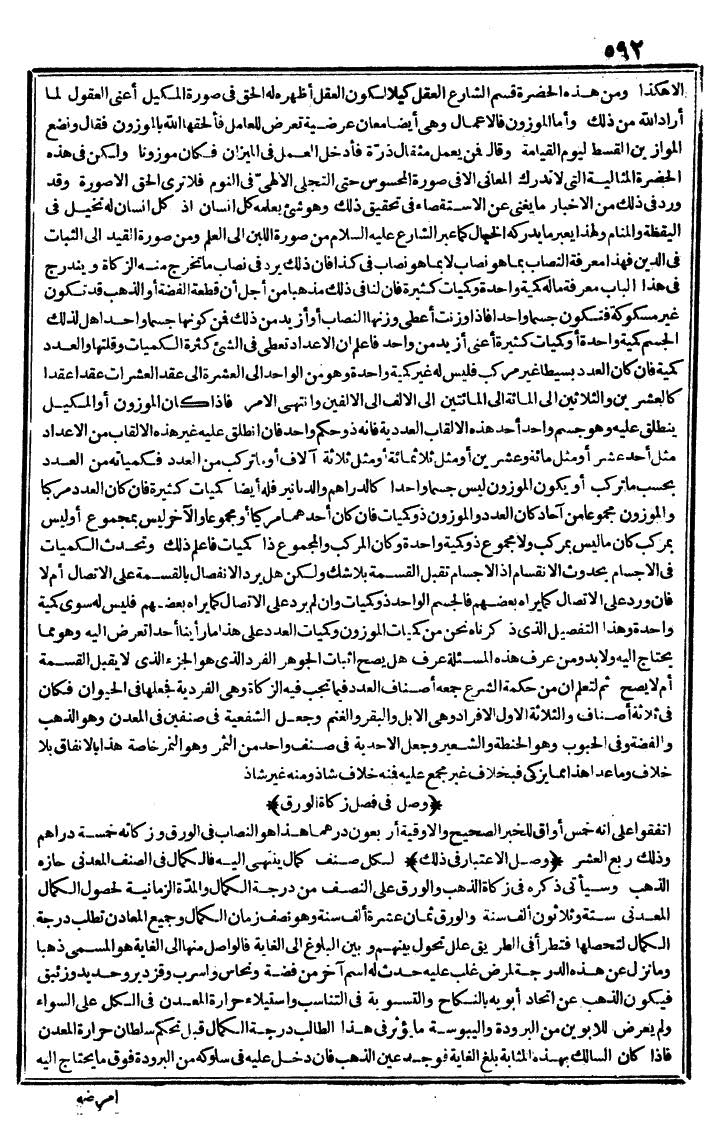 ٥٩٢
الا هكذا ومن هذه الحضرة قسم الشارع العقل كيلا لكون العقل أظهره له الحق فى صورة المكيل أعنى العقول لما
أراد الله من ذلك وأما الموزون فالاعمال وهى أيضا معان عرضية تعرض للعامل فألحقها الله بالموزون فقال ونضع
الموازين القسط ليوم القيامة وقال فمن يعمل مثقال ذرّة فأدخل العمل فى الميزان فكان موزونا ولكن فى هذه
الحضرة المثالية التى لا تدرك المعانى الا فى صورة المحسوس حتى التجلى الالهىّ فى النوم فلا ترى الحق الا صورة وقد
ورد فى ذلك من الاخبار ما يغنى عن الاستقصاء فى تحقيق ذلك وهو شئ يعلمه كل انسان اذ كل انسان له تخيل فى
اليقظة والمنام ولهذا يعبر ما يدركه الخيال كما عبر الشارع عليه السلام من صورة اللبن الى العلم ومن صورة القيد الى الثبات
فى الدين فهذا معرفة النصاب بما هو نصاب لا بما هو نصاب فى كذا فان ذلك يرد فى نصاب ما تخرج منه الزكاة ويندرج
فى هذا الباب معرفة ماله كمية واحدة وكميات كثيرة فان لنا فى ذلك مذهبا من أجل أن قطعة الفضة أو الذهب قد تكون
غير مسكوكة فتكون جسما واحدا فاذا وزنت أعطى وزنها النصاب أو أزيد من ذلك فمن كونها جسما واحدا هل لذلك
الجسم كمية واحدة أو كميات كثيرة أعنى أزيد من واحد فاعلم ان الاعداد تعطى فى الشئ كثرة الكميات وقلتها والعدد
كمية فان كان العدد بسيطا غير مركب فليس له غير كمية واحدة وهو من الواحد الى العشرة الى عقد العشرات عقدا عقدا
كالعشرين والثلاثين الى المائة الى المائتين الى الالف الى الالفين وانتهى الامر فاذا كان الموزون أو المكيل
ينطلق عليه وهو جسم واحد أحد هذه الالقاب العددية فانه ذو حكم واحد فان انطلق عليه غير هذه الالقاب من الاعداد
مثل أحد عشر أو مثل مائة وعشرين أو مثل ثلاثمائة أو مثل ثلاثة آلاف أو ما تركب من العدد فكمياته من العدد
بحسب ما تركب أو يكون الموزون ليس جسما واحدا كالدراهم والدنانير فله أيضا كميات كثيرة فان كان العدد مركبا
والموزون مجموعا من آحاد كان العدد والموزون ذو كميات فان كان أحدهما مركبا أو مجموعا والآخر ليس بمجموع أو ليس
بمركب كان ما ليس بمركب ولا مجموع ذو كمية واحدة وكان المركب والمجموع ذا كميات فاعلم ذلك وتحدث الكميات
فى الاجسام بحدوث الانقسام اذ الاجسام تقبل القسمة بلا شك ولكن هل يرد الانفصال بالقسمة على الاتصال أم لا
فان ورد على الاتصال كما يراه بعضهم فالجسم الواحد ذو كميات وان لم يرد على الاتصال كما يراه بعضهم فليس له سوى كمية
واحدة وهذا التفصيل الذى ذكرناه نحن من كميات الموزون وكميات العدد على هذا ما رأينا أحدا تعرض اليه وهو مما
يحتاج اليه ولا بد ومن عرف هذه المسئلة عرف هل يصح اثبات الجوهر الفرد الذى هو الجزء الذى لا يقبل القسمة
أم لا يصح ثم لتعلم ان من حكمة الشرع جعه أصناف العدد فيما تجب فيه الزكاة وهى الفردية فجعلها فى الحيوان فكان
فى ثلاثة أصناف والثلاثة الاول الافراد وهى الابل والبقر والغنم وجعل الشفعية فى صنفين فى المعدن وهو الذهب
والفضة وفى الحبوب وهو الحنطة والشعير وجعل الاحدية فى صنف واحد من الثمر وهو التمر خاصة هذا بالاتفاق بلا
خلاف وما عدا هذا مما يزكى فبخلاف غير مجمع عليه فمنه خلاف شاذ ومنه غير شاذ
﴿وصل فى فصل زكاة الورق﴾
اتفقوا على انه خمس أواق للخبر الصحيح والاوقية أربعون درهما هذا هو النصاب فى الورق وزكاته خمسة دراهم
وذلك ربع العشر ﴿وصل الاعتبار فى ذلك﴾ لكل صنف كمال ينتهى اليه فالكمال فى الصنف المعدنى حازه
الذهب وسيأتى ذكره فى زكاة الذهب والورق على النصف من درجة الكمال والمدّة الزمانية لحصول الكمال
المعدنى ستة وثلاثون ألف سنة والورق ثمان عشرة ألف سنة وهو نصف زمان الكمال وجميع المعادن تطلب درجة
الكمال لتحصلها فتطرأ فى الطريق علل تحول بينهم وبين البلوغ الى الغاية فالواصل منها الى الغاية هو المسمى ذهبا
وما نزل عن هذه الدرجة لمرض غلب عليه حدث له اسم آخر من فضة ونحاس واسرب وقزدير وحديد وزئبق
فيكون الذهب عن اتحاد أبويه بالنكاح والتسوية فى التناسب واستيلاء حرارة المعدن فى الكل على السواء
ولم يعرض للابوين من البرودة واليبوسة ما يؤثر فى هذا الطالب درجة الكمال قبل تحكم سلطان حرارة المعدن
فاذا كان السالك بهذه المثابة بلغ الغاية فوجد عين الذهب فان دخل عليه فى سلوكه من البرودة فوق ما يحتاج اليه
امرضه